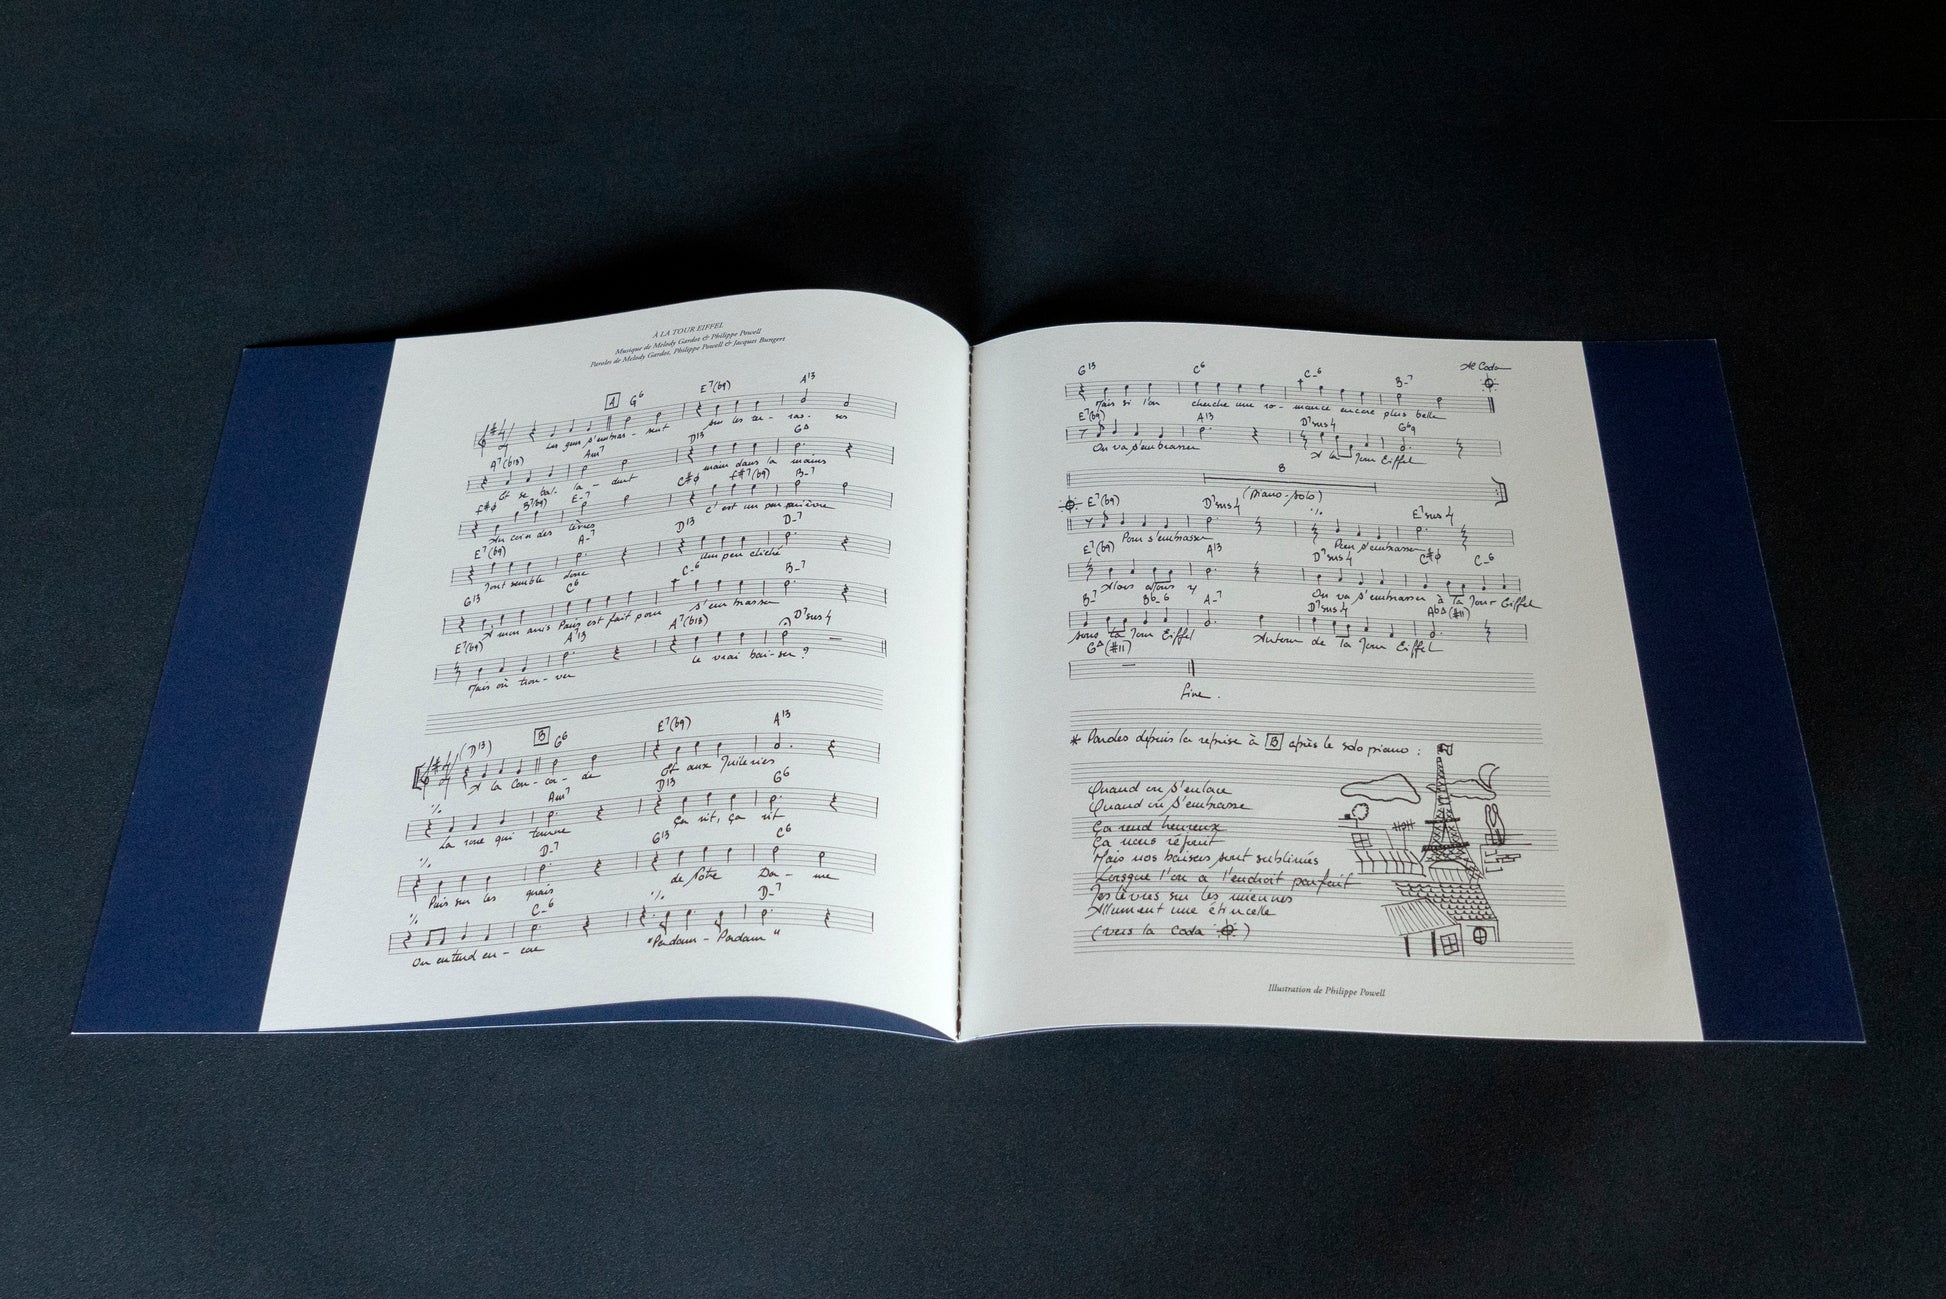 À LA TOUR EIFFEL
Musique de Melody Gardot & Philippe Powell
Paroles de Melody Gardot, Philippe Powell & Jacques Bungert
A G6 E7(b9) A13
Les gens s'embras- sent sur les ter- ras- ses
A7(b13) Am7 D13 G∆
Et se bal- la- dent main dans la mains
F#ø B7(b9) E-7 C#ø F#7(b9) B-7
Au coin des lèvres c'est un peu
E7(b9) A-7 D13 D-7
Tout semble donc Un peu cliché
G13 C6 C-6 B-7
À mon amis Paris est fait pour s'embrasser
E7(b9) A13 A7(b13) D7sus4
Mais où trou- ver le vrai bai-ser ?
(D13) B G6 E7(b9) A13
À la Con- cor- de Et aux Tuileries
٪ Am7 D13 G6
La roue qui tourne Ça rit, ça rit
٪ D-7 G13 C6
Puis sur les quais de Notre Da- me
٪ C-6 ٪ D-7
On entend en- core "Padam- Padam"
G13 C6 C-6 B-7 Al Coda
Mais si l'on cherche une ro- mance encore plus belle
E7(b9) A13 D7sus4 G69
On va s'embrasser À la Tour Eiffel
8
(piano-solo)
E7(b9) D7sus4 ٪ E7sus4
Pour s'embrasser Pour s'embrasser
E7(b9) A13 D7sus4 C#ø C-6
Alors allons y On va s'embrasser à la Tour Eiffel
B-7 Bb-6 A-7 D7sus4 Ab∆(#11)
sous la Tour Eiffel Autour de la Tour Eiffel
G∆(#11)
Fine.
* Paroles depuis la reprise à B après le solo piano :
Quand on s'enlace
Quand on s'embrasse
Ça rend heureux
Ça nous
Mais nos baisers sont sublimés
Lorsque l'on a l'endroit parfait
Tes lèvres sur les miennes
Allument une étincelle
(vers la Coda)
Illustration de Philippe Powell